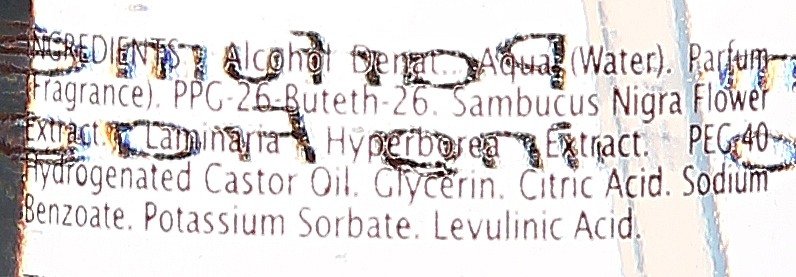 INGREDIENTS: Alcohol Denat., Aqua (Water). Parfum
(Fragrance). PPG-26-Buteth-26. Sambucus Nigra Flower
Extract. Laminaria Hyperborea Extract. PEG-40
Hydrogenated Castor Oil. Glycerin. Citric Acid. Sodium
Benzoate. Potassium Sorbate. Levulinic Acid.